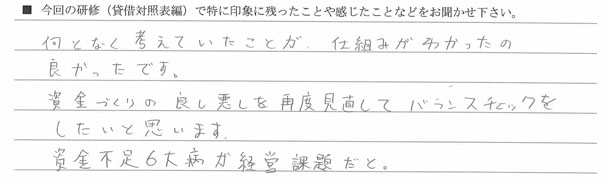 ■ 今回の研修（貸借対照表編）で特に印象に残ったことや感じたことなどをお聞かせ下さい。
何となく考えていたことが、仕組みがわかったの
良かったです。
資金づくりの良し悪しを再度見直してバランスチェックを
したいと思います。
資金不足6大病が経営課題だと。